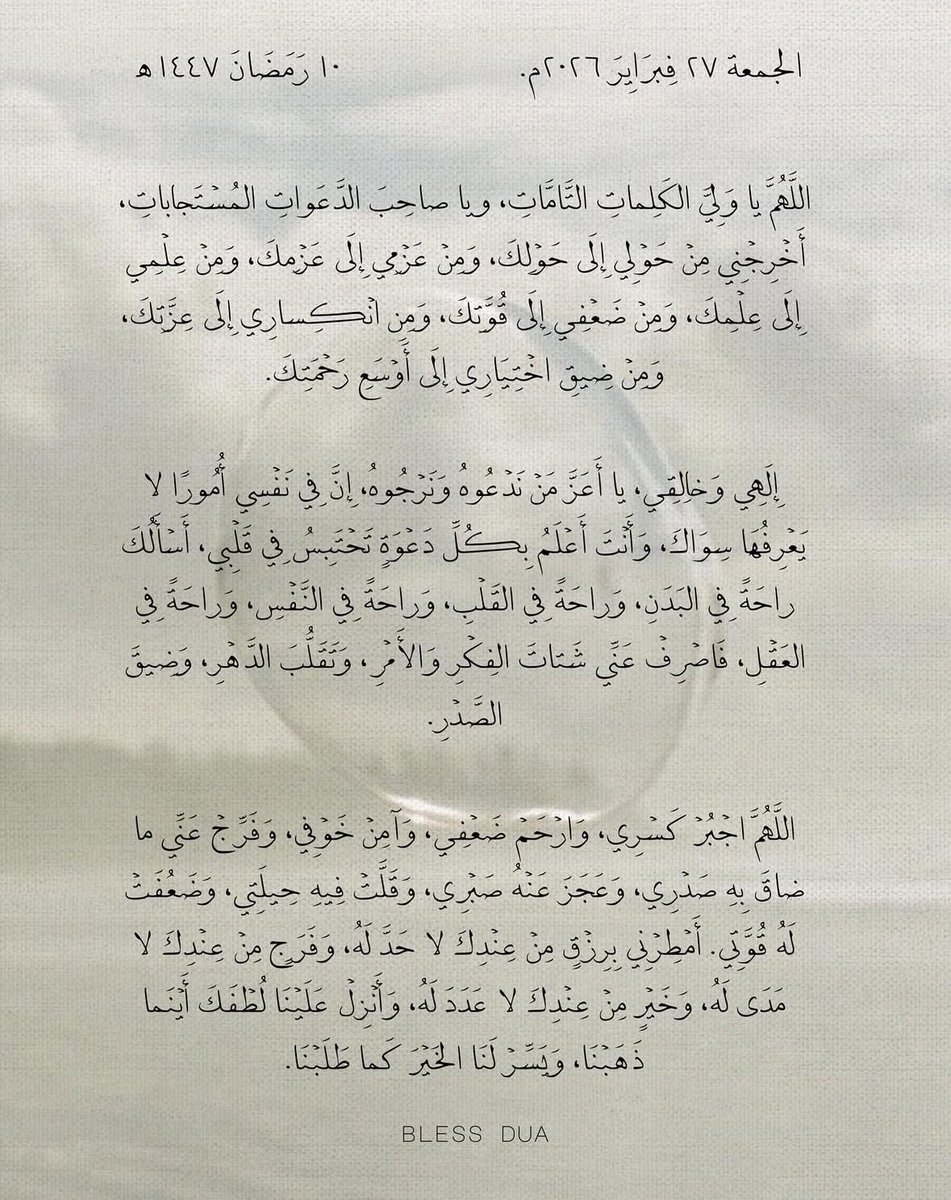 الجمعة ٢٧ فِبرَايِرَ ٢٠٢٦م. ١٠ رَمَضَانَ ١٤٤٧هـ
اللَّهُمَّ يا وَلِيَّ الكَلِماتِ التَّامَّاتِ، ويا صاحِبَ الدَّعَواتِ المُسْتَجاباتِ،
أَخْرِجْنِي مِنْ حَوْلِي إِلَى حَوْلِكَ، وَمِنْ عَزْمِي إِلَى عَزْمِكَ، وَمِنْ عِلْمِي
إِلَى عِلْمِكَ، وَمِنْ ضَعْفِي إِلَى قُوَّتِكَ، وَمِنِ انْكِسارِي إِلَى عِزَّتِكَ،
وَمِنْ ضِيقِ اخْتِيَارِي إِلَى أَوْسَعِ رَحْمَتِكَ.
إِلَهِي وَخالِقِي، يا أَعَزَّ مَنْ نَدْعُوهُ وَنَرْجُوهُ، إِنَّ فِي نَفْسِي أُمُورًا لا
يَعْرِفُهَا سِوَاكَ، وَأَنْتَ أَعْلَمُ بِكُلِّ دَعْوَةٍ تَحْتَبِسُ فِي قَلْبِي، أَسْأَلُكَ
راحَةً فِي البَدَنِ، وَراحَةً فِي القَلْبِ، وَراحَةً فِي النَّفْسِ، وَراحَةً فِي
العَقْلِ، فَاصْرِفْ عَنِّي شَتاتَ الفِكْرِ وَالأَمْرِ، وَتَقَلُّبَ الدَّهْرِ، وَضِيقَ
الصَّدْرِ.
اللَّهُمَّ اجْبُرْ كَسْرِي، وَارْحَمْ ضَعْفِي، وَآمِنْ خَوْفِي، وَفَرِّجْ عَنِّي ما
ضاقَ بِهِ صَدْرِي، وَعَجَزَ عَنْهُ صَبْرِي، وَقَلَّتْ فِيهِ حِيلَتِي، وَضَعُفَتْ
لَهُ قُوَّتِي. أَمْطِرْنِي بِرِزْقٍ مِنْ عِنْدِكَ لا حَدَّ لَهُ، وَفَرَجٍ مِنْ عِنْدِكَ لا
مَدَى لَهُ، وَخَيْرٍ مِنْ عِنْدِكَ لا عَدَدَ لَهُ، وَأَنْزِلْ عَلَيْنَا لُطْفَكَ أَيْنَما
ذَهَبْنَا، وَيَسِّرْ لَنَا الخَيْرَ كَما طَلَبْنَا.
BLESS DUA